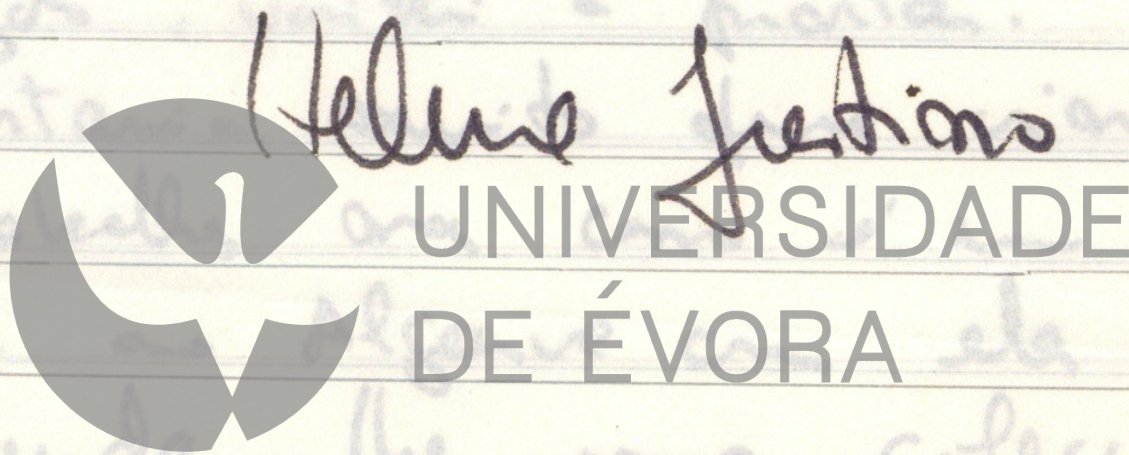 Helena Justino
UNIVERSIDADE
DE ÉVORA